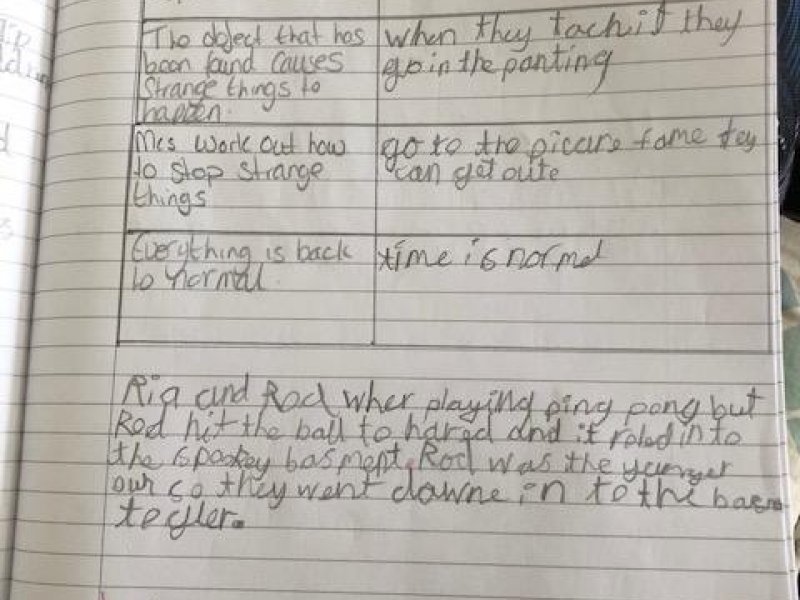 The object that has
been found causes
Strange things to
happen.
when they tachit they
go in the panting
Mcs work out how
to stop strange
things
go to the picare fame tey
can get oute
Everything is back
to normal.
time is normal
Ria and Rod wher playing ping pong but
Rod hit the ball to hared and it roled in to
the spookey basment. Rod was the yunger
our so they went downe in to the basm